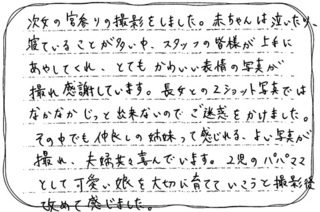 次女の宮参りの撮影をしました。赤ちゃんは泣いたり、
寝ていることが多い中、スタッフの皆様が上手に
あやしてくれ、とてもかわいい表情の写真が
撮れ感謝しています。長女との2ショット写真では
なかなかじっと出来ないのでご迷惑をかけました。
その中でも仲良しの姉妹って感じれる、よい写真が
撮れ、夫婦共々喜んでいます。2児のパパママ
として可愛い娘を大切に育てていこうと撮影後
改めて感じました。